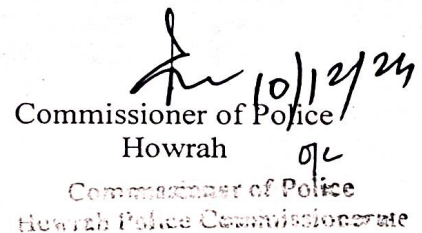 10/12/24
Commissioner of Police
Howrah
Commissioner of Police
Howrah Police Commissionerate